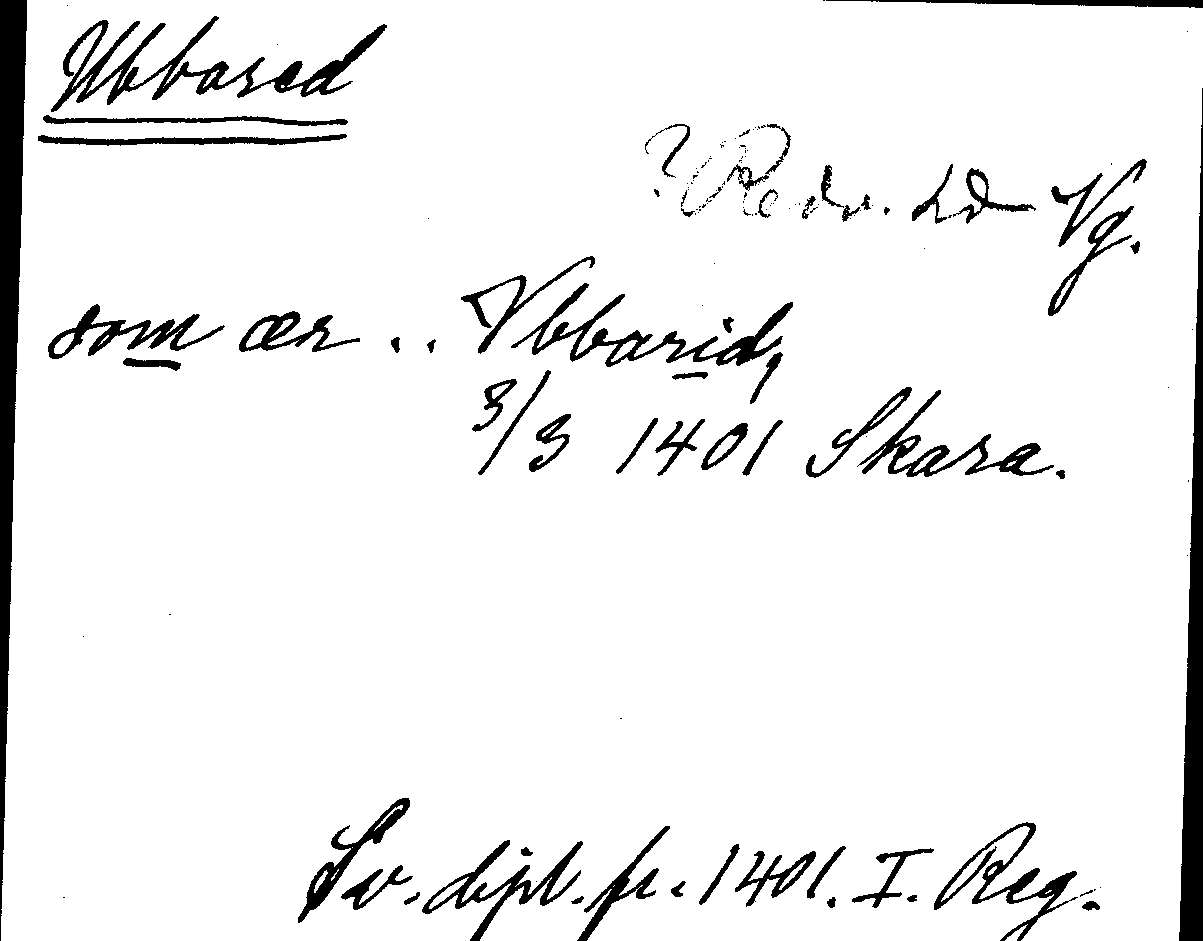 Ubbared
? Redv. hd Vg.
som ær .. Vbbarid,
3/3 1401 Skara.
Sv. dipl. fr. 1401. I. Reg.